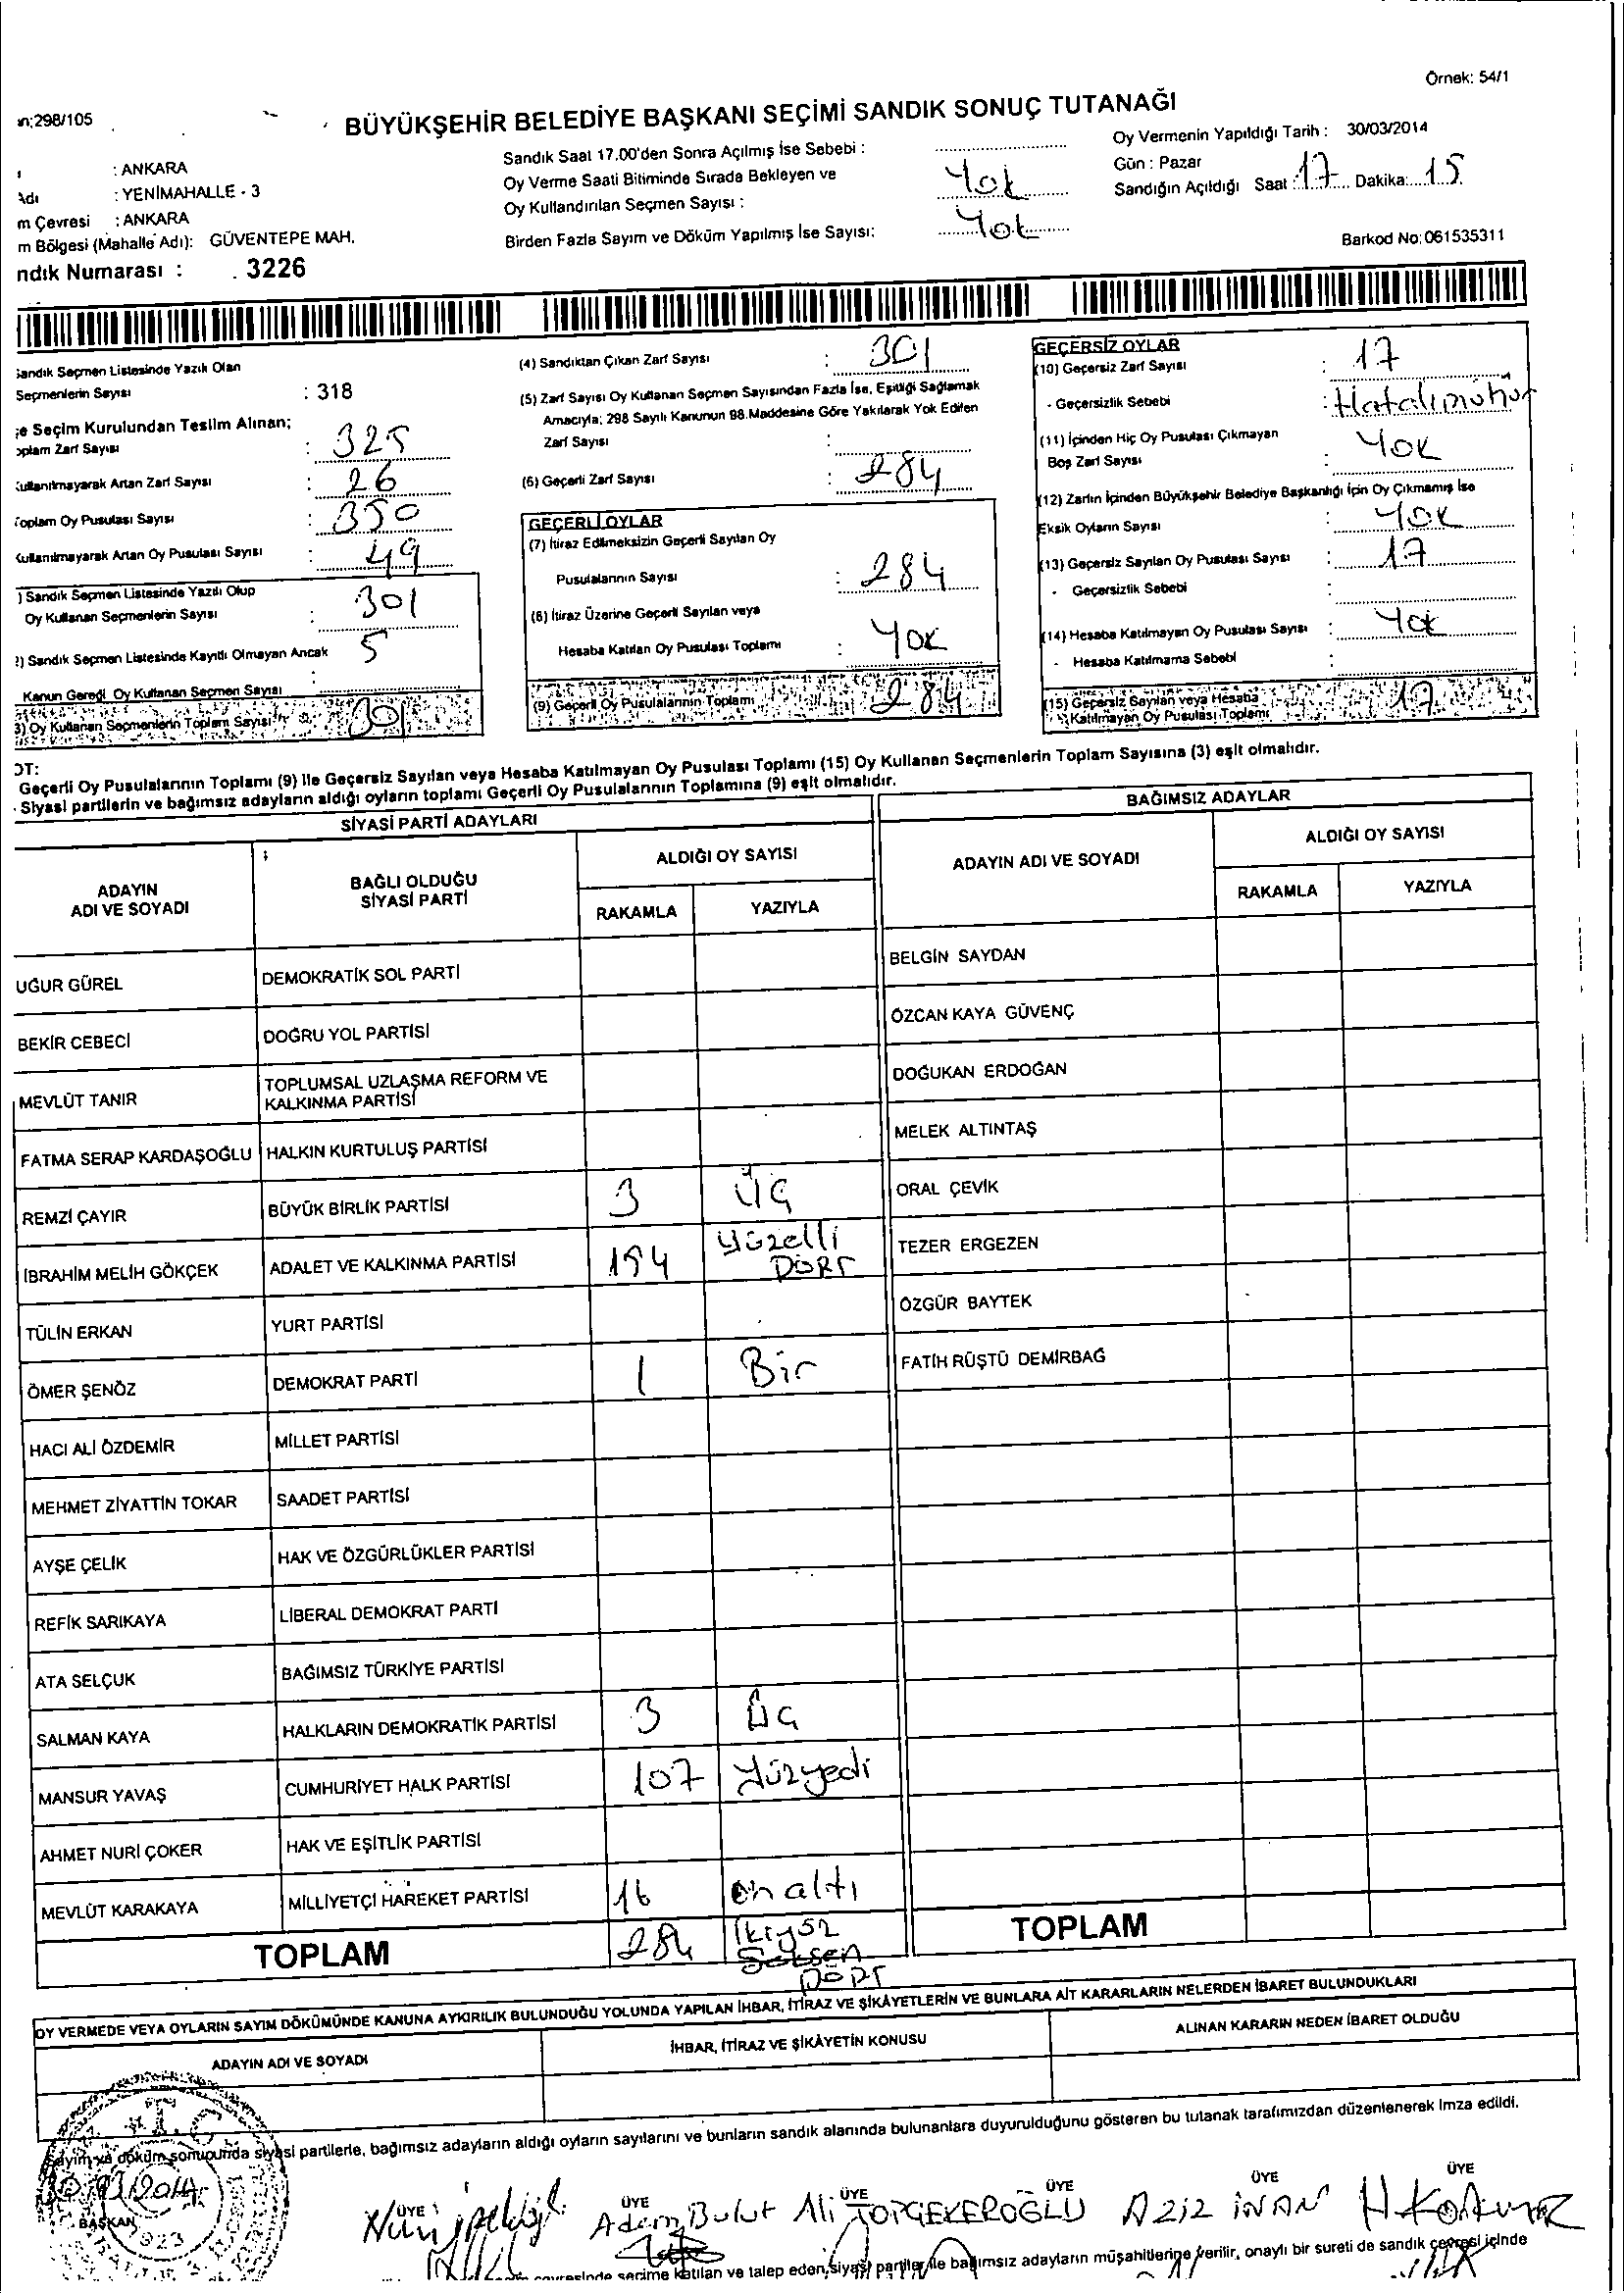 Örnek: 54/1
n;298/105
BÜYÜKŞEHİR BELEDİYE BAŞKANI SEÇİMİ SANDIK SONUÇ TUTANAĞI
: ANKARA
Adı : YENİMAHALLE - 3
m Çevresi : ANKARA
m Bölgesi (Mahalle Adı): GÜVENTEPE MAH.
ndık Numarası : 3226
Sandık Saat 17.00'den Sonra Açılmış İse Sebebi :
Oy Verme Saati Bitiminde Sırada Bekleyen ve
Oy Kullandırılan Seçmen Sayısı : Yok
Birden Fazla Sayım ve Döküm Yapılmış İse Sayısı: Yok
Oy Vermenin Yapıldığı Tarih : 30/03/2014
Gün : Pazar
Sandığın Açıldığı Saat : 17 Dakika: 15
Barkod No: 061535311
Sandık Seçmen Listesinde Yazılı Olan
Seçmenlerin Sayısı : 318
çe Seçim Kurulundan Teslim Alınan;
oplam Zarf Sayısı : 325
Kullanılmayarak Artan Zarf Sayısı : 26
Toplam Oy Pusulası Sayısı : 350
Kullanılmayarak Artan Oy Pusulası Sayısı : 49
) Sandık Seçmen Listesinde Yazılı Olup
Oy Kullanan Seçmenlerin Sayısı : 301
2) Sandık Seçmen Listesinde Kayıtlı Olmayan Ancak 5
Kanun Gereği Oy Kullanan Seçmen Sayısı :
3) Oy Kullanan Seçmenlerin Toplam Sayısı 301
(4) Sandıktan Çıkan Zarf Sayısı : 301
(5) Zarf Sayısı Oy Kullanan Seçmen Sayısından Fazla İse, Eşitliği Sağlamak
Amacıyla; 298 Sayılı Kanunun 98.Maddesine Göre Yakılarak Yok Edilen
Zarf Sayısı :
(6) Geçerli Zarf Sayısı : 284
GEÇERLİ OYLAR
(7) İtiraz Edilmeksizin Geçerli Sayılan Oy
Pusulalarının Sayısı : 284
(8) İtiraz Üzerine Geçerli Sayılan veya
Hesaba Katılan Oy Pusulası Toplamı : Yok
(9) Geçerli Oy Pusulalarının Toplamı 284
GEÇERSİZ OYLAR
(10) Geçersiz Zarf Sayısı : 17
- Geçersizlik Sebebi : Hatalı mühür
(11) İçinden Hiç Oy Pusulası Çıkmayan
Boş Zarf Sayısı : Yok
(12) Zarfın İçinden Büyükşehir Belediye Başkanlığı İçin Oy Çıkmamış İse
Eksik Oyların Sayısı : Yok
(13) Geçersiz Sayılan Oy Pusulası Sayısı : 17
- Geçersizlik Sebebi :
(14) Hesaba Katılmayan Oy Pusulası Sayısı : Yok
- Hesaba Katılmama Sebebi :
(15) Geçersiz Sayılan veya Hesaba
Katılmayan Oy Pusulası Toplamı 17
OT:
Geçerli Oy Pusulalarının Toplamı (9) ile Geçersiz Sayılan veya Hesaba Katılmayan Oy Pusulası Toplamı (15) Oy Kullanan Seçmenlerin Toplam Sayısına (3) eşit olmalıdır.
- Siyasi partilerin ve bağımsız adayların aldığı oyların toplamı Geçerli Oy Pusulalarının Toplamına (9) eşit olmalıdır.
SİYASİ PARTİ ADAYLARI
ADAYIN ADI VE SOYADI
BAĞLI OLDUĞU SİYASİ PARTİ
ALDIĞI OY SAYISI
RAKAMLA YAZIYLA
UĞUR GÜREL DEMOKRATİK SOL PARTİ
BEKİR CEBECİ DOĞRU YOL PARTİSİ
MEVLÜT TANIR TOPLUMSAL UZLAŞMA REFORM VE KALKINMA PARTİSİ
FATMA SERAP KARDAŞOĞLU HALKIN KURTULUŞ PARTİSİ
REMZİ ÇAYIR BÜYÜK BİRLİK PARTİSİ 3 Üç
İBRAHİM MELİH GÖKÇEK ADALET VE KALKINMA PARTİSİ 154 Yüzelli DÖRT
TÜLİN ERKAN YURT PARTİSİ
ÖMER ŞENÖZ DEMOKRAT PARTİ 1 Bir
HACI ALİ ÖZDEMİR MİLLET PARTİSİ
MEHMET ZİYATTİN TOKAR SAADET PARTİSİ
AYŞE ÇELİK HAK VE ÖZGÜRLÜKLER PARTİSİ
REFİK SARIKAYA LİBERAL DEMOKRAT PARTİ
ATA SELÇUK BAĞIMSIZ TÜRKİYE PARTİSİ
SALMAN KAYA HALKLARIN DEMOKRATİK PARTİSİ 3 Üç
MANSUR YAVAŞ CUMHURİYET HALK PARTİSİ 107 Yüzyedi
AHMET NURİ ÇOKER HAK VE EŞİTLİK PARTİSİ
MEVLÜT KARAKAYA MİLLİYETÇİ HAREKET PARTİSİ 16 On altı
TOPLAM 284 İkiyüz Seksen DÖRT
BAĞIMSIZ ADAYLAR
ADAYIN ADI VE SOYADI
ALDIĞI OY SAYISI
RAKAMLA YAZIYLA
BELGİN SAYDAN
ÖZCAN KAYA GÜVENÇ
DOĞUKAN ERDOĞAN
MELEK ALTINTAŞ
ORAL ÇEVİK
TEZER ERGEZEN
ÖZGÜR BAYTEK
FATİH RÜŞTÜ DEMİRBAĞ
TOPLAM
OY VERMEDE VEYA OYLARIN SAYIM DÖKÜMÜNDE KANUNA AYKIRILIK BULUNDUĞU YOLUNDA YAPILAN İHBAR, İTİRAZ VE ŞİKÂYETLERİN VE BUNLARA AİT KARARLARIN NELERDEN İBARET BULUNDUKLARI
ADAYIN ADI VE SOYADI
İHBAR, İTİRAZ VE ŞİKÂYETİN KONUSU
ALINAN KARARIN NEDEN İBARET OLDUĞU
T.C
Sayım ve döküm sonucunda siyasi partilerle, bağımsız adayların aldığı oyların sayılarını ve bunların sandık alanında bulunanlara duyurulduğunu gösteren bu tutanak tarafımızdan düzenlenerek imza edildi.
BAŞKAN ÜYE ÜYE ÜYE ÜYE ÜYE ÜYE
Adem Bulut Aziz İNAN
seçime katılan ve talep eden siyasi partiler ile bağımsız adayların müşahitlerine verilir, onaylı bir sureti de sandık çevresi içinde